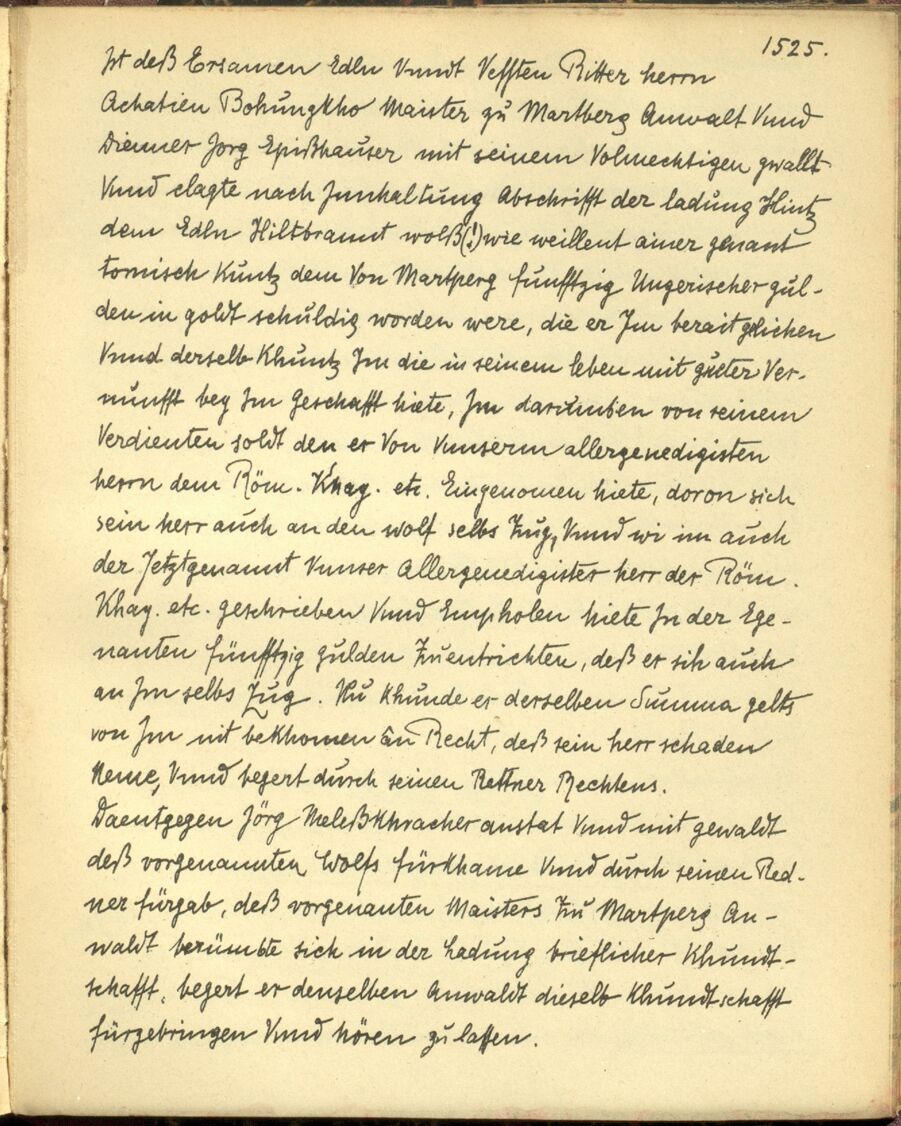 1525.
Ist deß Ersamen Edln Vnndt Vefften Ritter herrn
Achatien Bohungkho Maister zu Martberg Anwalt Vnnd
Dienner Jorg Epißhauser mit seinem Volmechtigen gwallt
Vnnd clagte nach Innhaltung Abschrifft der ladung Hintz
dem Edln Hiltbrannt wolß(!) wie weillent ainer genant
tornisch Kuntz dem Von Martperg funfftzig Ungerischer gul-
den in goldt schuldig worden were, die er Im berait gelichen
Vnnd derselb Khuntz Im die in seinem leben mit gueter Ver-
nunfft bey Im Geschafft hiete, Im darumben von seinem
Verdienten soldt den er Von Vnnserm allergenedigisten
herrn dem Röm. Khay. etc. Eingenomen hiete, doron sich
sein herr auch an den wolf selbs Zug, Vnnd wi im auch
der Jetztgenannt Vnnser Allergenedigister herr der Röm.
Khay. etc. geschrieben Vnnd Empholen hiete In der Ege-
nanten fünfftzig gulden Zuentrichten, deß er sih auch
an Im selbs Zug. Nu khunde er derselben Summa gelts
von Im nit bekhomen an Recht, deß sein herr schaden
Neme, Vnnd begert durch seinen Rettner Rechtens.
Daentgegen Jörg Meleßkhracher anstat Vnnd mit gewaldt
deß vorgenannten Wolfs fürkhame Vnnd durch seinen Red-
ner fürgab, deß vorgenanten Maisters Zu Martperg An-
waldt berümbte sich in der Ladung brieflicher Khundt-
schafft, begert er denselben Anwaldt dieselb Khundtschafft
fürgebringen Vnnd hören zu lassen.